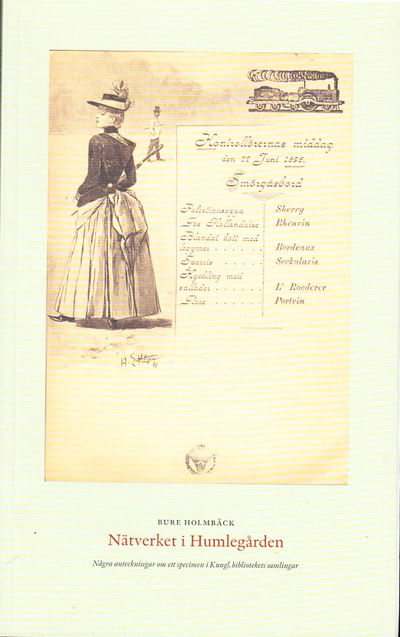 Kontrollörernas middag
den 22 Juni 1896.
Smörgåsbord
Palestinasoppa Sherry
Sås Hollandaise Rhenvin
Blandad kött med
legymer Bordeaux
Sparris Seckularis
Kyckling med
sallader L' Roederer
Glace Portvin
BURE HOLMBÄCK
Nätverket i Humlegården
Några anteckningar om ett specimen i Kungl. bibliotekets samlingar